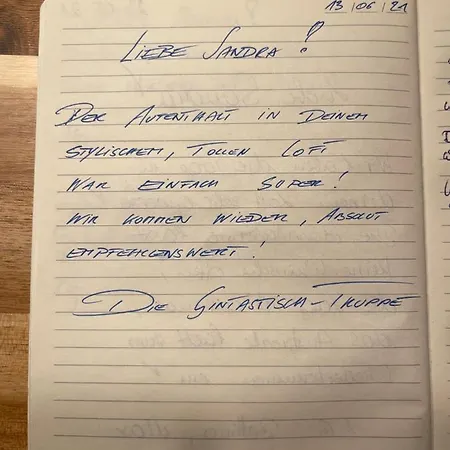 13 | 06 | 21
LIEBE SANDRA!
DER AUTENTHALT IN DEINEM
STYLISCHEM, TOLLEN LOFT
WAR EINFACH SUPER!
WIR KOMMEN WIEDER, ABSOLUT
EMPFEHLENSWERT!
DIE GINTASTISCH-TRUPPE